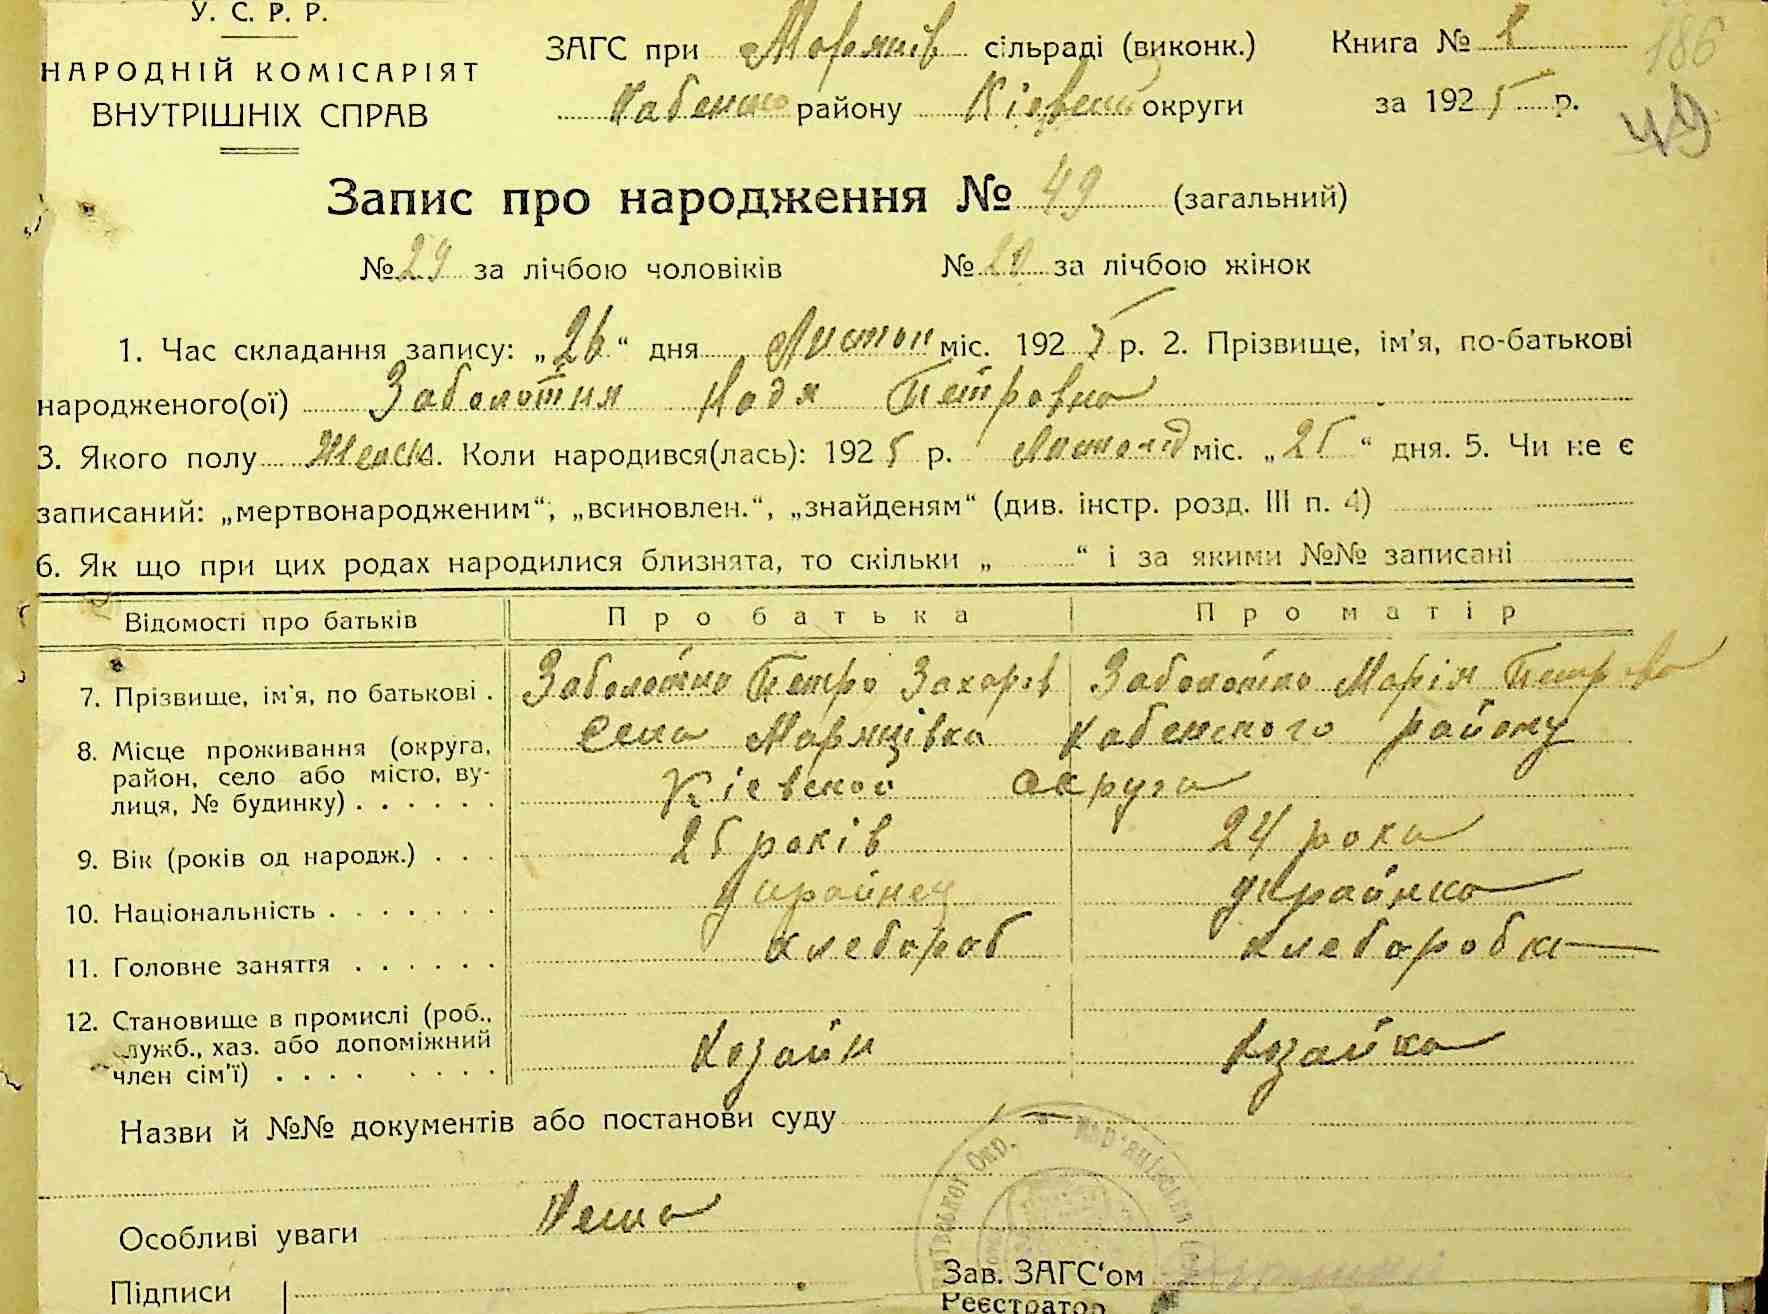 У. С. Р. Р.
НАРОДНІЙ КОМІСАРІЯТ
ВНУТРІШНІХ СПРАВ
ЗАГС при сільраді (виконк.) Книга № 1
186
району округи за 1925 р.
49
Запис про народження № 49 (загальний)
№ 29 за лічбою чоловіків № за лічбою жінок
1. Час складання запису: „26“ дня Листоп міс. 1925 р. 2. Прізвище, ім'я, по-батькові
народженого(ої) Заболотня Надя Петровна
3. Якого полу Женск. Коли народився(лась): 1925 р. Листопад міс. „25“ дня. 5. Чи не є
записаний: „мертвонародженим“, „всиновлен.“, „знайденям“ (див. інстр. розд. III п. 4)
6. Як що при цих родах народилися близнята, то скільки „ “ і за якими №№ записані
Відомості про батьків Про батька Про матір
7. Прізвище, ім'я, по батькові . Заболотно Петро Захаров Заболотно Марія Петрова
8. Місце проживання (округа, село району
район, село або місто, ву-
лиця, № будинку) . . . . . . Кіевской округа
9. Вік (років од народж.) . . . 25 років 24 рока
10. Національність . . . . . . . украйнец украйнка
11. Головне заняття . . . . . . хлебороб хлеборобка
12. Становище в промислі (роб.,
служб., хаз. або допоміжний хозайн хозайка
член сім'ї) . . . . . . . .
Назви й №№ документів або постанови суду
Особливі уваги Нема
Зав. ЗАГС'ом
Підписи
Реєстратор